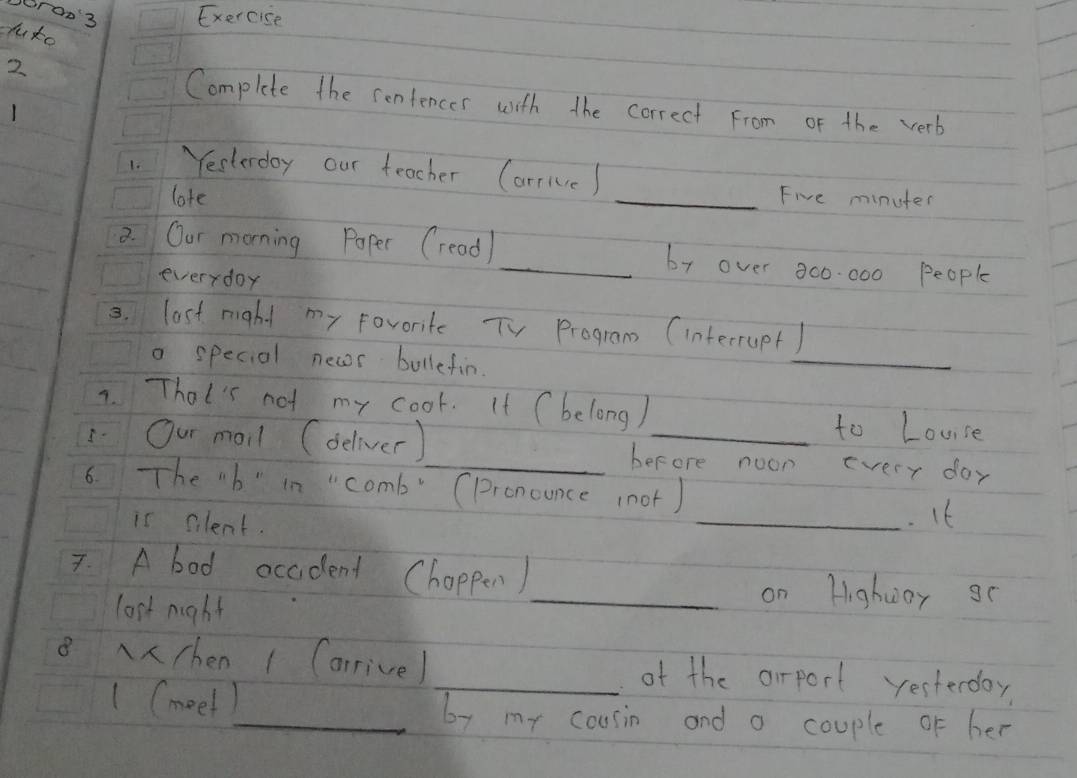 3
2
1
Exercise
Complete the sentences with the correct From OF the verb
1. Yesterday our teacher (arrive) ________ Five minutes
late
2. Our morning Paper (read) ________ by over 200.000 People
everyday
3. last night my Favorite TV Program (interrupt) ________
a special news bulletin.
4. That's not my coat. It (belong) ________ to Louise
5. Our mail (deliver) ________ before noon every day
6. The "b" in "comb" (Pronounce, not) ________. It
is silent.
7. A bad accident (happen) ________ on Highway
last night
8 When I (arrive) ________ at the airport yesterday,
I (meet) ________ by my cousin and a couple of her